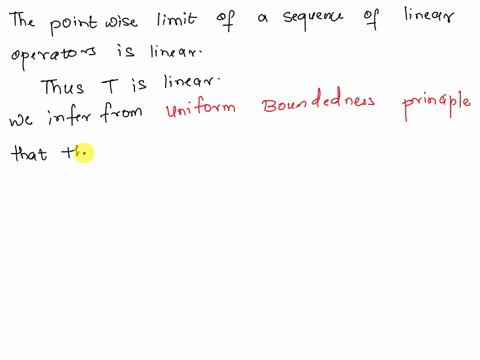 The point wise limit of a sequence of linear
operators is linear.
Thus T is linear.
we infer from Uniform Boundedness prinaple
that